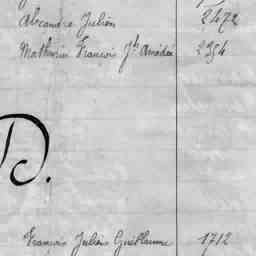 Alexandre Julien 2472
Mathurin François Jh Amédée 2354
D.
François Julien Guillaume 1712